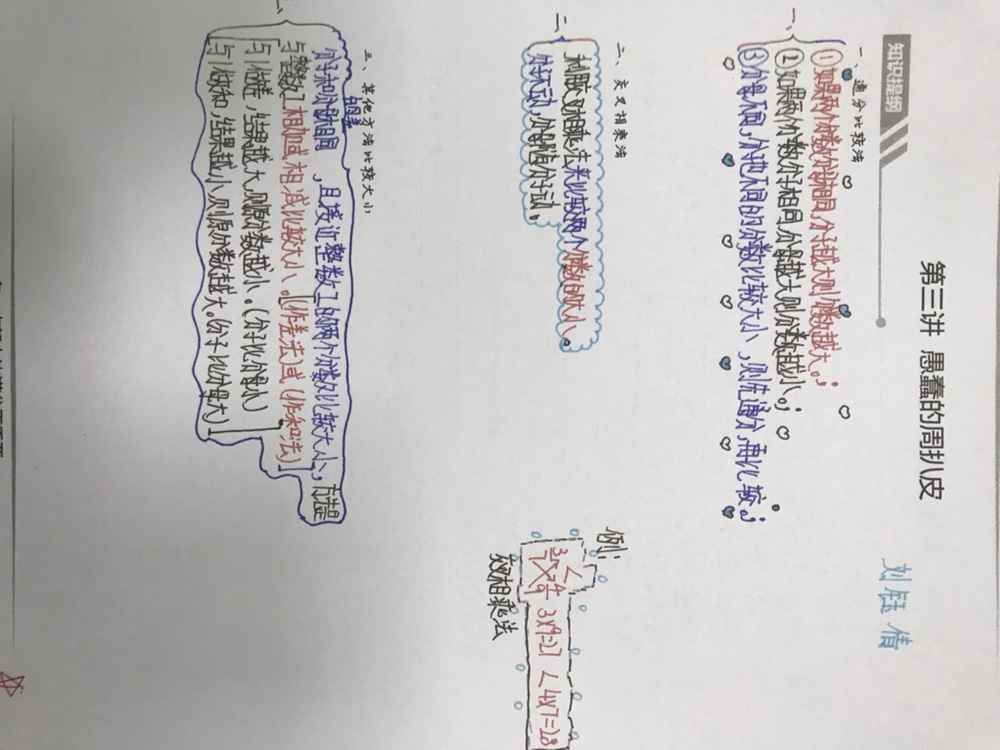 第三讲 愚蠢的周扒皮
刘钰倩
知识提纲
一、通分比较法
一、
①如果两个分数分母相同,分子越大则分数越大。;
②如果两个分数分子相同,分母越大则分数越小。;
③分母不同,分子也不同的分数比较大小,则先通分,再比较。;
二、交叉相乘法
二、
利用交叉相乘法来比较两个分数的大小。
分子不动,分母随分子动。
例:
3/7 < 4/9 3×9=27 < 4×7=28
交叉相乘法
三、其他方法比较大小
三、
分子和分母的差相同,且接近整数1的两个分数比较大小,方法是
与整数1相加或相减比较大小。(作差法)或(作和法)
与1做差,结果越大,则原分数越小。(分子比分母小)
与1做和,结果越小,则原分数越大。(分子比分母大)